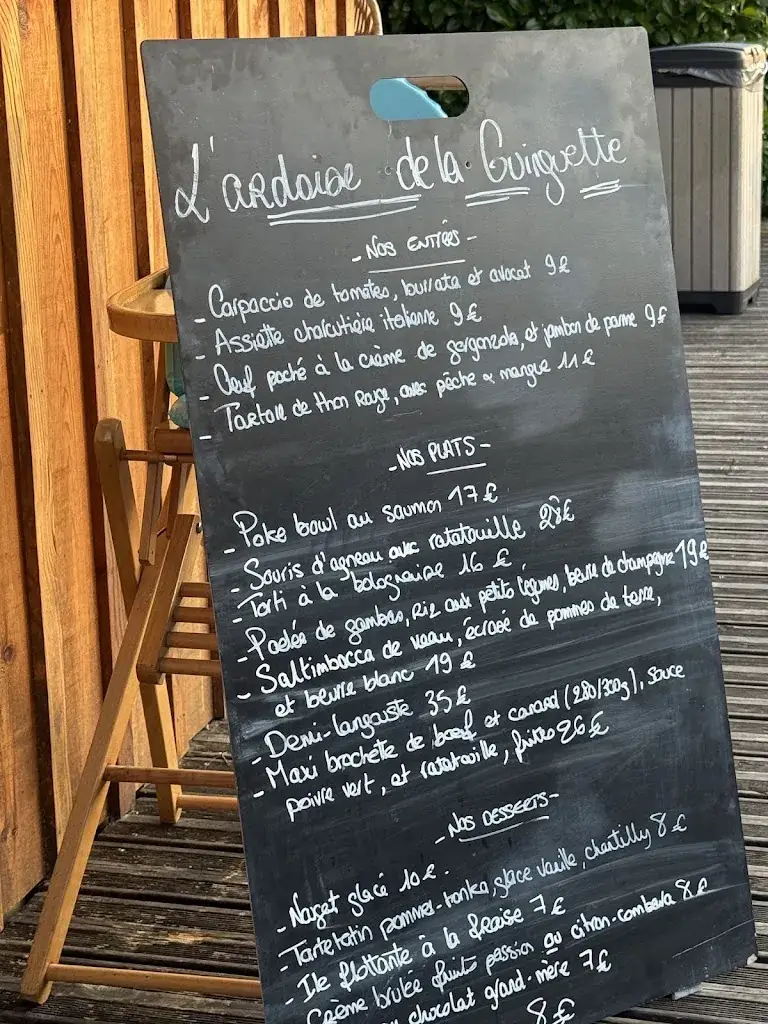 L'ardoise de la Guinguette
- Nos entrées -
- Carpaccio de tomates, burrata et avocat 9€
- Assiette charcutière italienne 9€
- Oeuf poché à la crème de gorgonzola, et jambon de parme 9€
- Tartare de thon Rouge, avec pêche & mangue 11€
- Nos PLATS -
- Poke bowl au saumon 17€
- Souris d'agneau avec ratatouille 28€
- Torti à la bolognaise 16€
- Poelée de gambas, Riz aux petits légumes, beurre de champagne 19€
- Saltimbocca de veau, écrasé de pommes de terre,
et beurre blanc 19€
- Demi-langouste 35€
- Maxi brochette de boeuf et canard (280/300g), sauce
poivre vert, et ratatouille, frites 26€
- Nos DESSERTS -
- Nougat glacé 10€.
- Tarte tatin pomme-tonka, glace vanille, chantilly 8€
- Ile flottante à la fraise 7€
- Crème brûlée fruits passion ou citron-combava 8€
au chocolat grand-mère 7€
8€